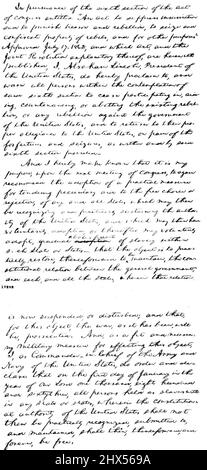 In pursuance of the sixth section of the act
of congress entitled "An act to suppress insurrection
and to punish treason and rebellion, to seize and
confiscate property of rebels, and for other purposes"
Approved July 17. 1862, and which act, and the
Joint Resolution explanatory thereof, are herewith
published, I, Abraham Lincoln, President of
the United States, do hereby proclaim to, and
warn all persons within the contemplation of
said sixth section to cease participating in, aiding,
countenancing, or abetting the existing rebellion,
or any rebellion against the government
of the United States, and to return to their proper
allegiance to the United States, on pain of the
forfeitures and seizures, as within and by said
sixth section provided
And I hereby make known that it is my
purpose, upon the next meeting of congress, to again
recommend the adoption of a practical measure
for tendering pecuniary aid to the free choice or
rejection, of any and all States, which may then
be recognizing and practically sustaining the authority
of the United States, and which may then have
voluntarily adopted, or thereafter may voluntarily
adopt, gradual abolishment of slavery within
such State or States. that the object is to practically
restore, thenceforward to maintain, the constitutional
relation between the general government,
and each, and all the states, wherein that relation
is now suspended, or disturbed; and that
for this object, the war, as it has been, will
be, prosecuted. And, as a fit and necessary
military measure for effecting this object,
I, as Commander-in-Chief of the Army and
Navy of the United States, do order and declare
that on the first day of January in the
year of our Lord one thousand, eight hundred
and sixtythree, all persons held as slaves within
any state or states, wherein the constitutional
authority of the United States shall not
then be practically recognized, submitted to,
and maintained, shall then, thenceforward, and
forever, be free.
alamy
2HX569A